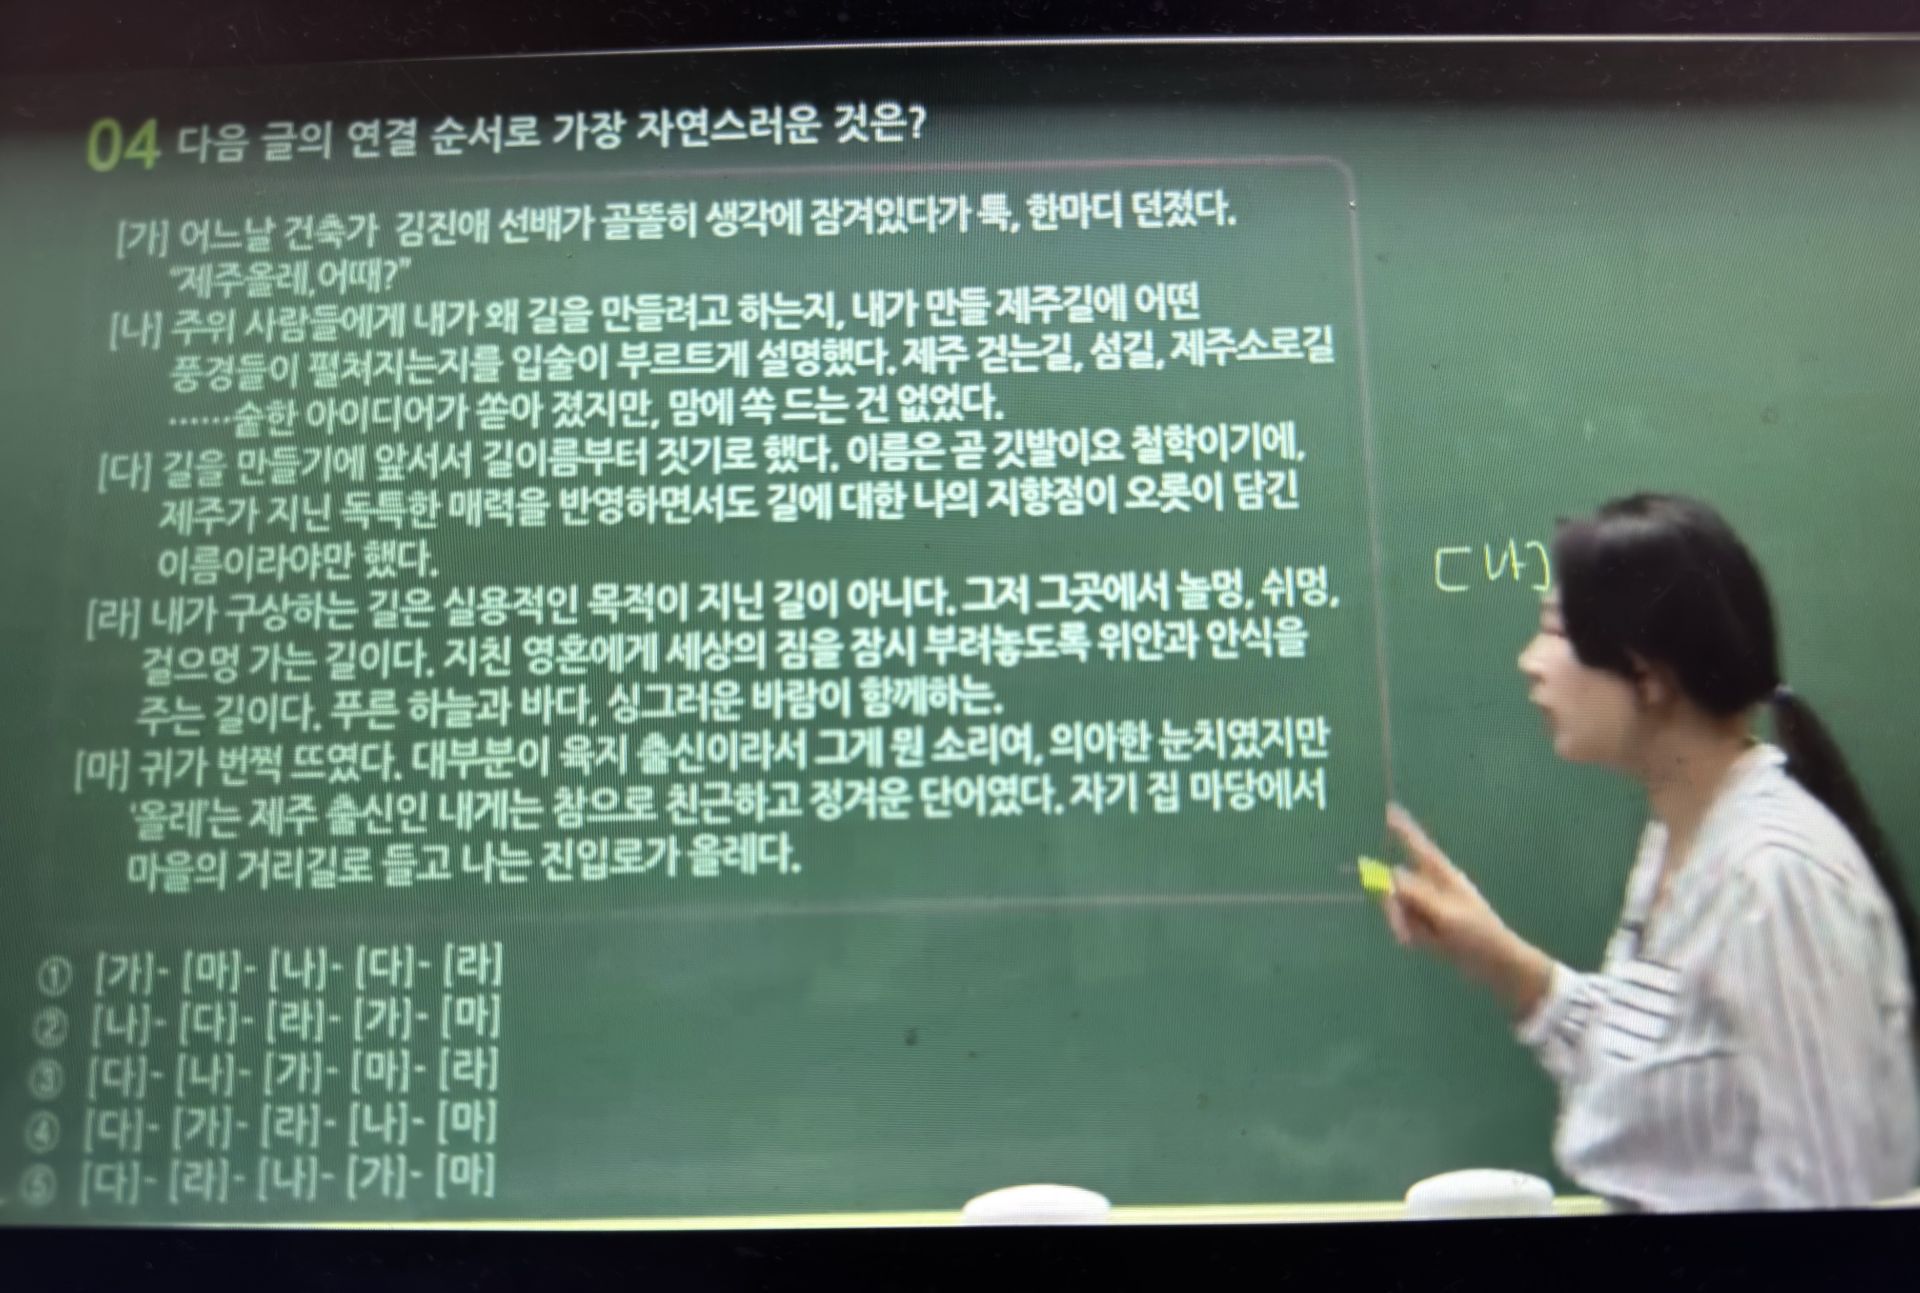 04 다음 글의 연결 순서로 가장 자연스러운 것은?
[가] 어느날 건축가 김진애 선배가 골똘히 생각에 잠겨있다가 툭, 한마디 던졌다.
"제주올레, 어때?"
[나] 주위 사람들에게 내가 왜 길을 만들려고 하는지, 내가 만들 제주길에 어떤
풍경들이 펼쳐지는지를 입술이 부르트게 설명했다. 제주 걷는길, 섬길, 제주소로길
……숱한 아이디어가 쏟아 졌지만, 맘에 쏙 드는 건 없었다.
[다] 길을 만들기에 앞서서 길이름부터 짓기로 했다. 이름은 곧 깃발이요 철학이기에,
제주가 지닌 독특한 매력을 반영하면서도 길에 대한 나의 지향점이 오롯이 담긴
이름이라야만 했다.
[라] 내가 구상하는 길은 실용적인 목적이 지닌 길이 아니다. 그저 그곳에서 놀멍, 쉬멍,
걸으멍 가는 길이다. 지친 영혼에게 세상의 짐을 잠시 부려놓도록 위안과 안식을
주는 길이다. 푸른 하늘과 바다, 싱그러운 바람이 함께하는.
[마] 귀가 번쩍 뜨였다. 대부분이 육지 출신이라서 그게 뭔 소리여, 의아한 눈치였지만
'올레'는 제주 출신인 내게는 참으로 친근하고 정겨운 단어였다. 자기 집 마당에서
마을의 거리길로 들고 나는 진입로가 올레다.
[나]
① [가]- [마]- [나]- [다]- [라]
② [나]- [다]- [라]- [가]- [마]
③ [다]- [나]- [가]- [마]- [라]
④ [다]- [가]- [라]- [나]- [마]
⑤ [다]- [라]- [나]- [가]- [마]